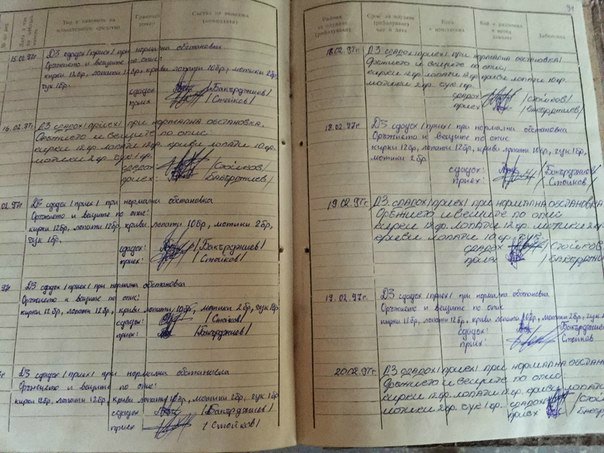 15.02.97г. ДЗ сдадох /приех/ при нормална обстановка
Оръжието и вещите по опис:
кирки 12бр, лопати 12бр, криви лопати 10бр, мотики 2бр,
чук 1бр.
сдадох: /Багърджиев/
приех: /Стойков/
16.02.97г. ДЗ сдадох /приех/ при нормална обстановка.
Оръжието и вещите по опис
кирки 12 бр. лопати 12 бр. криви лопати 10 бр.
мотики 2 бр. чук 1 бр.
сдадох /Стойков/
приех /Багърджиев/
02.97г. ДЗ сдадох /приех/ при нормална обстановка
Оръжието и вещите по опис:
кирки 12бр, лопати 12бр, криви лопати 10бр, мотики 2бр,
чук 1бр,
сдадох: /Багърджиев/
приех: /Стойков/
ДЗ сдадох /приех/ при нормална обстановка
Оръжието и вещите по опис:
кирки 12бр, лопати 12бр, криви лопати 10бр, мотики 2бр, чук 1бр,
сдадох: /Стойков/
приех: /Багърджиев/
ДЗ сдадох /приех/ при нормална обстановка
Оръжието и вещите по опис:
кирки 12бр, лопати 12бр, криви лопати 10бр, мотики 2бр, чук 1бр
сдадох /Багърджиев/
приех /Стойков/
Забележка
18.02.97г. ДЗ сдадох /приех/ при нормална обстановка
Оръжието и вещите по опис
кирки 12 бр. лопати 12 бр. криви лопати 10 бр.
мотики 2 бр. чук 1 бр.
сдадох /Стойков/
приех /Багърджиев/
18.02.97г. ДЗ сдадох /приех/ при нормална обстановка
Оръжието и вещите по опис:
кирки 12бр, лопати 12бр, криви лопати 10бр, чук 1бр,
мотики 2бр.
сдадох: /Багърджиев/
приех: /Стойков/
19.02.97г. ДЗ. сдадох /приех/ при нормална обстановка
Оръжието и вещите по опис
кирки 12 бр. лопати 12 бр. мотики 2
криви лопати 10 бр. чук
сдадох /Стойков/
приех /Багърджиев
19.02.97г. ДЗ сдадох /приех/ при нормална обстановка
Оръжието и вещите по опис:
кирки 12бр, лопати 12бр, криви лопати 10бр, мотики 2бр, чук
сдадох: /Багърджиев
приех: /Стойков
20.02.97г. ДЗ сдадох /приех/ при нормална обстанов
Оръжието и вещите по опис
кирки 12 бр. лопати 12 бр. криви лопати 10
мотики 2 бр. чук 1 бр. сдадох /Стой
приех /Багър